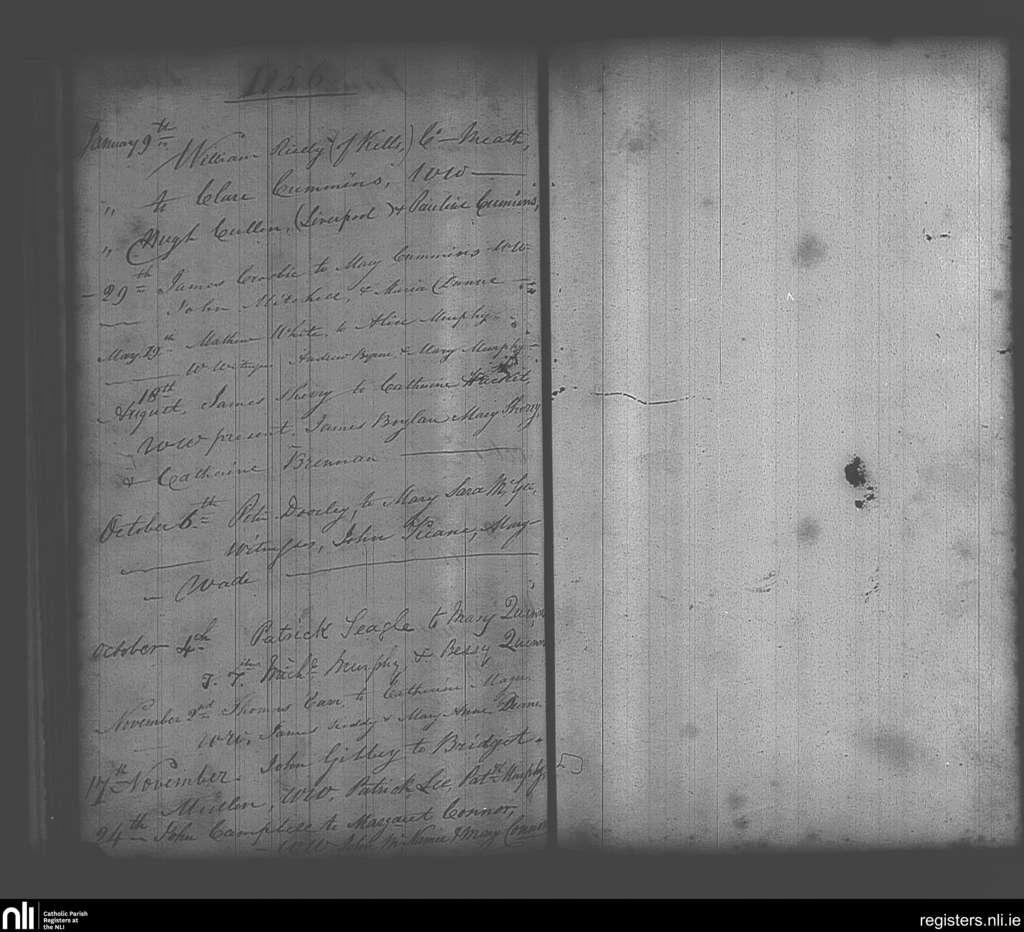 1856
January 9th
William Riedy (of Kells,) Co Meath,
" to Clare Cummins, WW
" Hugh Cullen, (Liverpool) & Pauline Cumins,
29th James Crosbie to Mary Cummins WW
John Mitchell, & Maria Dunne
May 19th Mathew White, to Alice Murphy
Witnesses Andrew Byrne, & Mary Murphy
18th
August, James Shery to Catharine
WW present. James Boylan Mary Shery,
& Catharine Brennan
October 6th Peter Dooley, to Mary Sara McGee,
Witnesses, John Keane, Mary
Wade
October 4th Patrick Teagle to Mary Quinn
Michl Murphy & Bessy Quinn
November 2nd Thomas Carr to Catharine
WW, James & Mary Anne
17th November. John Gibbey to Bridget
Mullen, WW. Patrick Lee, Patk Murphy
24th John Campbell to Margaret Connor,
WW John McNamee & Mary Connor
nli
Catholic Parish
Registers at
the NLI
registers.nli.ie